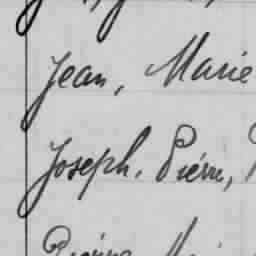 Jean, Marie
Joseph. Pierre,